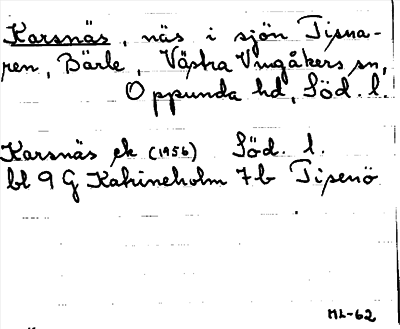 Karsnäs, näs i sjön Tisna-
ren, Bärle, Västra Vingåkers sn,
Oppunda hd, Söd. l.
Karsnäs ek (1956) Söd. l.
bl 9 G Katrineholm 7b Tisenö
ML-62